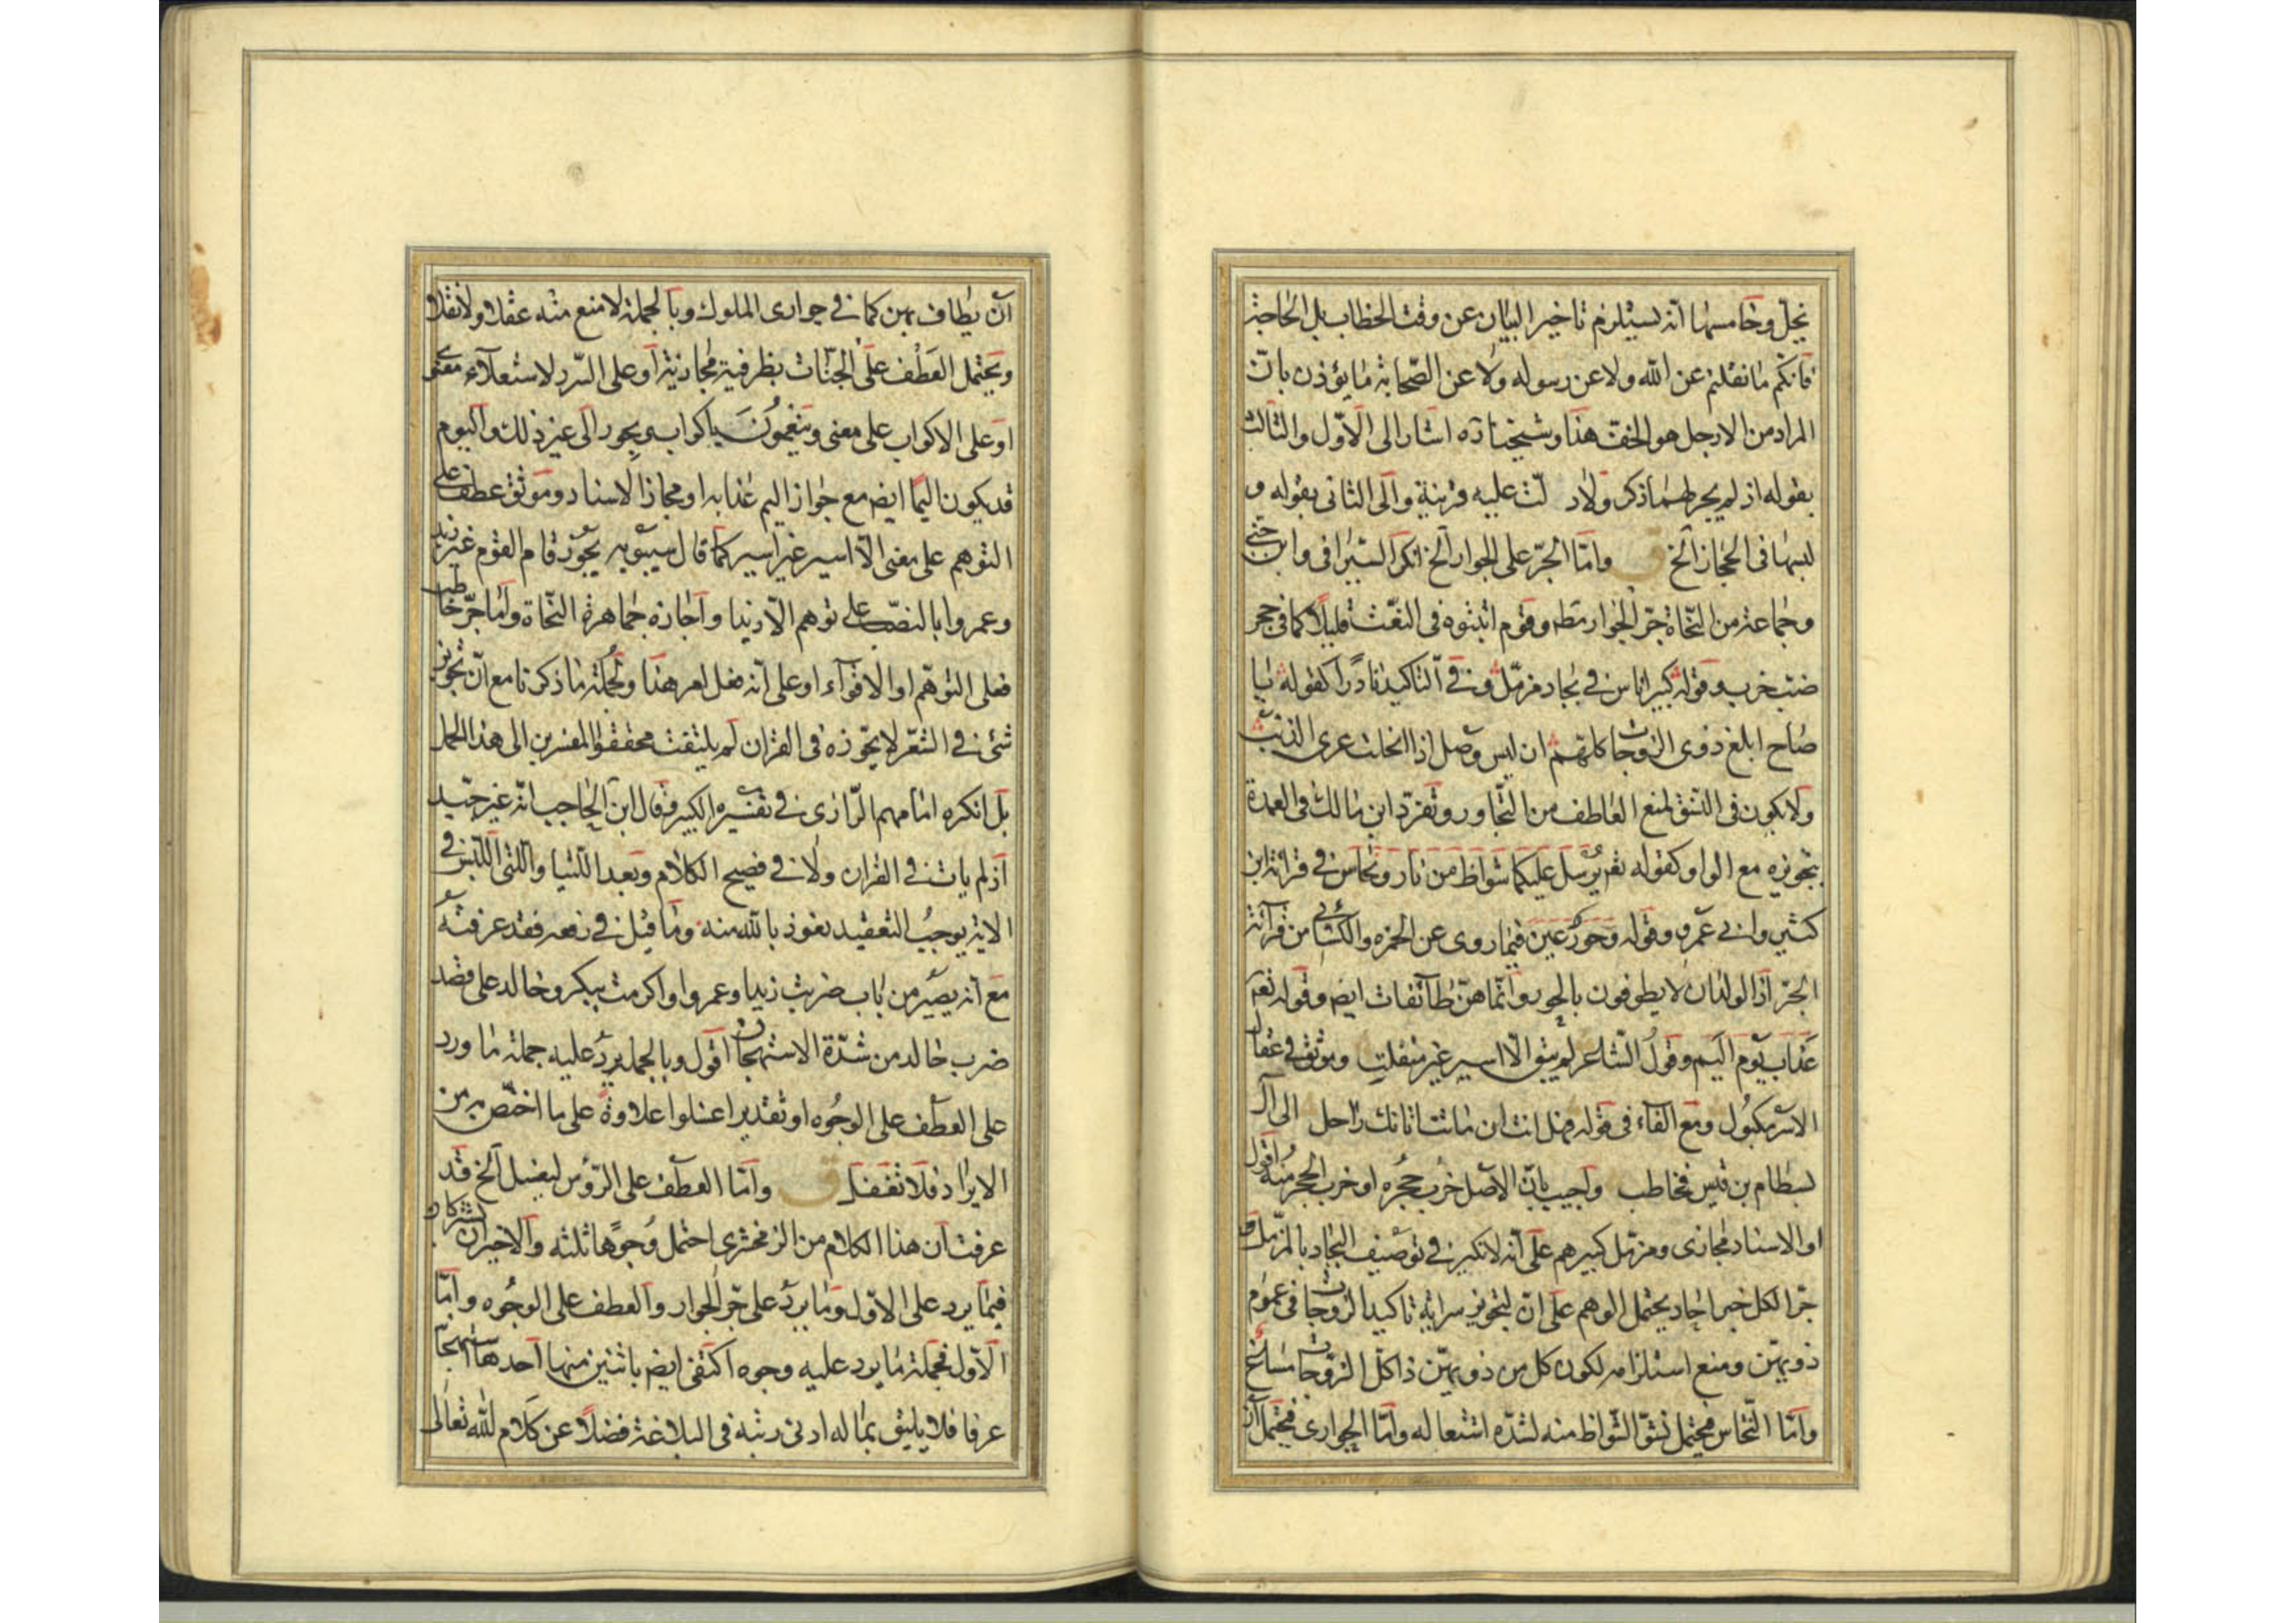 يخل وخامسها انه يستلزم تاخير البيان عن وقت الخطاب بل الحاجة
فانكم ما نقلتم عن الله ولا عن رسوله ولا عن الصحابة ما يؤذن بان
المراد من الارجل هو الخف هذا وشيخنا ره اشار الى الاول والثالث
بقوله اذ لم يجر لهما ذكر ولا دلت عليه قرينة والى الثانى بقوله و
لبسها فى الحجاز الخ ق واما الجر على الجوار الخ انكر السيرافى وابن جنى
وجماعة من النحاة جر الجوار مط وقوم اثبتوه فى النعت قليلا كما فى جحر
ضب خرب وقوله كبير اناس في بجاد مزمل وفي التاكيد نادرا كقوله يا
صاح ابلغ ذوى الزوجات كلهم ان ليس وصل اذا انحلت عرى الذنب
ولا يكون فى النسق لمنع العاطف من التجاور وتفرد ابن مالك فى العمدة
بتجويزه مع الواو كقوله تعم يرسل عليكما شواظ من نار ونحاس في قرائة ابن
كثير وابي عمرو وقوله وحور عين فيما روى عن الحمزه والكسائي من قرآئة
الجر اذ الولدان لا يطوفون بالحور وانما هن طآئفات ايض وقوله تعم
عذاب يوم اليم وقول الشاعر لم يبق الا اسير غير منفلت وموثق في عقال
الاسر مكبول ومع الفاء فى قوله فهل انت ان ماتت اتانك راحل الى آل
بسطام بن قيس فخاطب واجيب بان الاصل خرب جحره او خرب الجحر منه اقول
او الاسناد مجازى ومزمل كبيرهم على انه لا نكير في توصيف البجاد بالمزمل و
جر الكل خبر احاد يحتمل الوهم على ان لتجويز سراية تاكيد الزوجات فى عموم
ذويهن ومنع استلزامه لكون كل من ذويهن ذا كل الزوجات مسائغ
واما النحاس فيحتمل نشق الشواظ منه لشدة اشتعاله واما الجوارى فيحتمل ان
ان يطاف بهن كما في جوارى الملوك وبالجملة لا منع منه عقلا ولا نقلا
ويحتمل العطف على الجنات بظرفية مجازية او على السرر لاستعلآء معنى
او على الاكواب على معنى وينعمون باكواب وبحور الى غير ذلك واليوم
قد يكون اليما ايض مع جواز اليم عذابه او مجاز الاسناد وموثق عطف على
التوهم على معنى الا اسير غير اسير كما قال سيبويه يجوز قام القوم غير زيد
وعمروا بالنصب على توهم الا زيدا واجازه جماهرة النحاة واما جر خاطب
فعلى التوهم او الاقوآء او على انه فعل امر هذا وجملة ما ذكرنا مع ان تجويز
شئ في الشعر لا يجوزه فى القران لم يلتفت محققوا المفسرين الى هذا الحمل
بل انكره امامهم الرازى في تفسيره الكبير وقال ابن الحاجب انه غير جيد
اذ لم يات في القران ولا في فصيح الكلام وبعد اللتيا واللتى اللبس في
الاية يوجب التعقيد نعوذ بالله منه وما قيل في رفعه فقد عرفته
مع انه يصير من باب ضربت زيدا وعمروا واكرمت ببكر وخالد على قصد
ضرب خالد من شدة الاستهجان اقول وبالجملة يرد عليه جملة ما ورد
على العطف على الوجوه او تقدير اغسلوا علاوة على ما اختص به من
الايراد فلا تغفل ق واما العطف على الرؤس ليفسل الخ قد
عرفت ان هذا الكلام من الزمخشرى احتمل وجوها ثلثه والاخيران يشتركان
فيما يرد على الاول وما يرد على جر الجوار والعطف على الوجوه واما
الاول فجملة ما يرد عليه وجوه اكتفى ايض باثنين منها احدها استهجانا
عرفا فلا يليق بما له ادنى رتبة فى البلاغة فضلا عن كلام الله تعالى